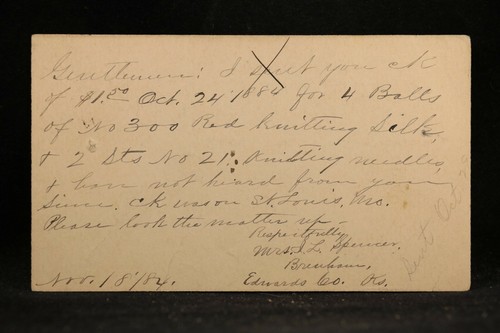 Gentlemen: I sent you ck
of $1.50 Oct. 24 1884 for 4 Balls
of No 300 Red knitting Silk,
& 2 Sts No 21. Knitting needles,
& have not heard from you
Since. Ck was on St. Louis, Mo.
Please look the matter up-
Respectfully,
Mrs. L. Spencer.
Brenham,
Edwards Co. Ks.
Nov. 18/84.
Sent Oct